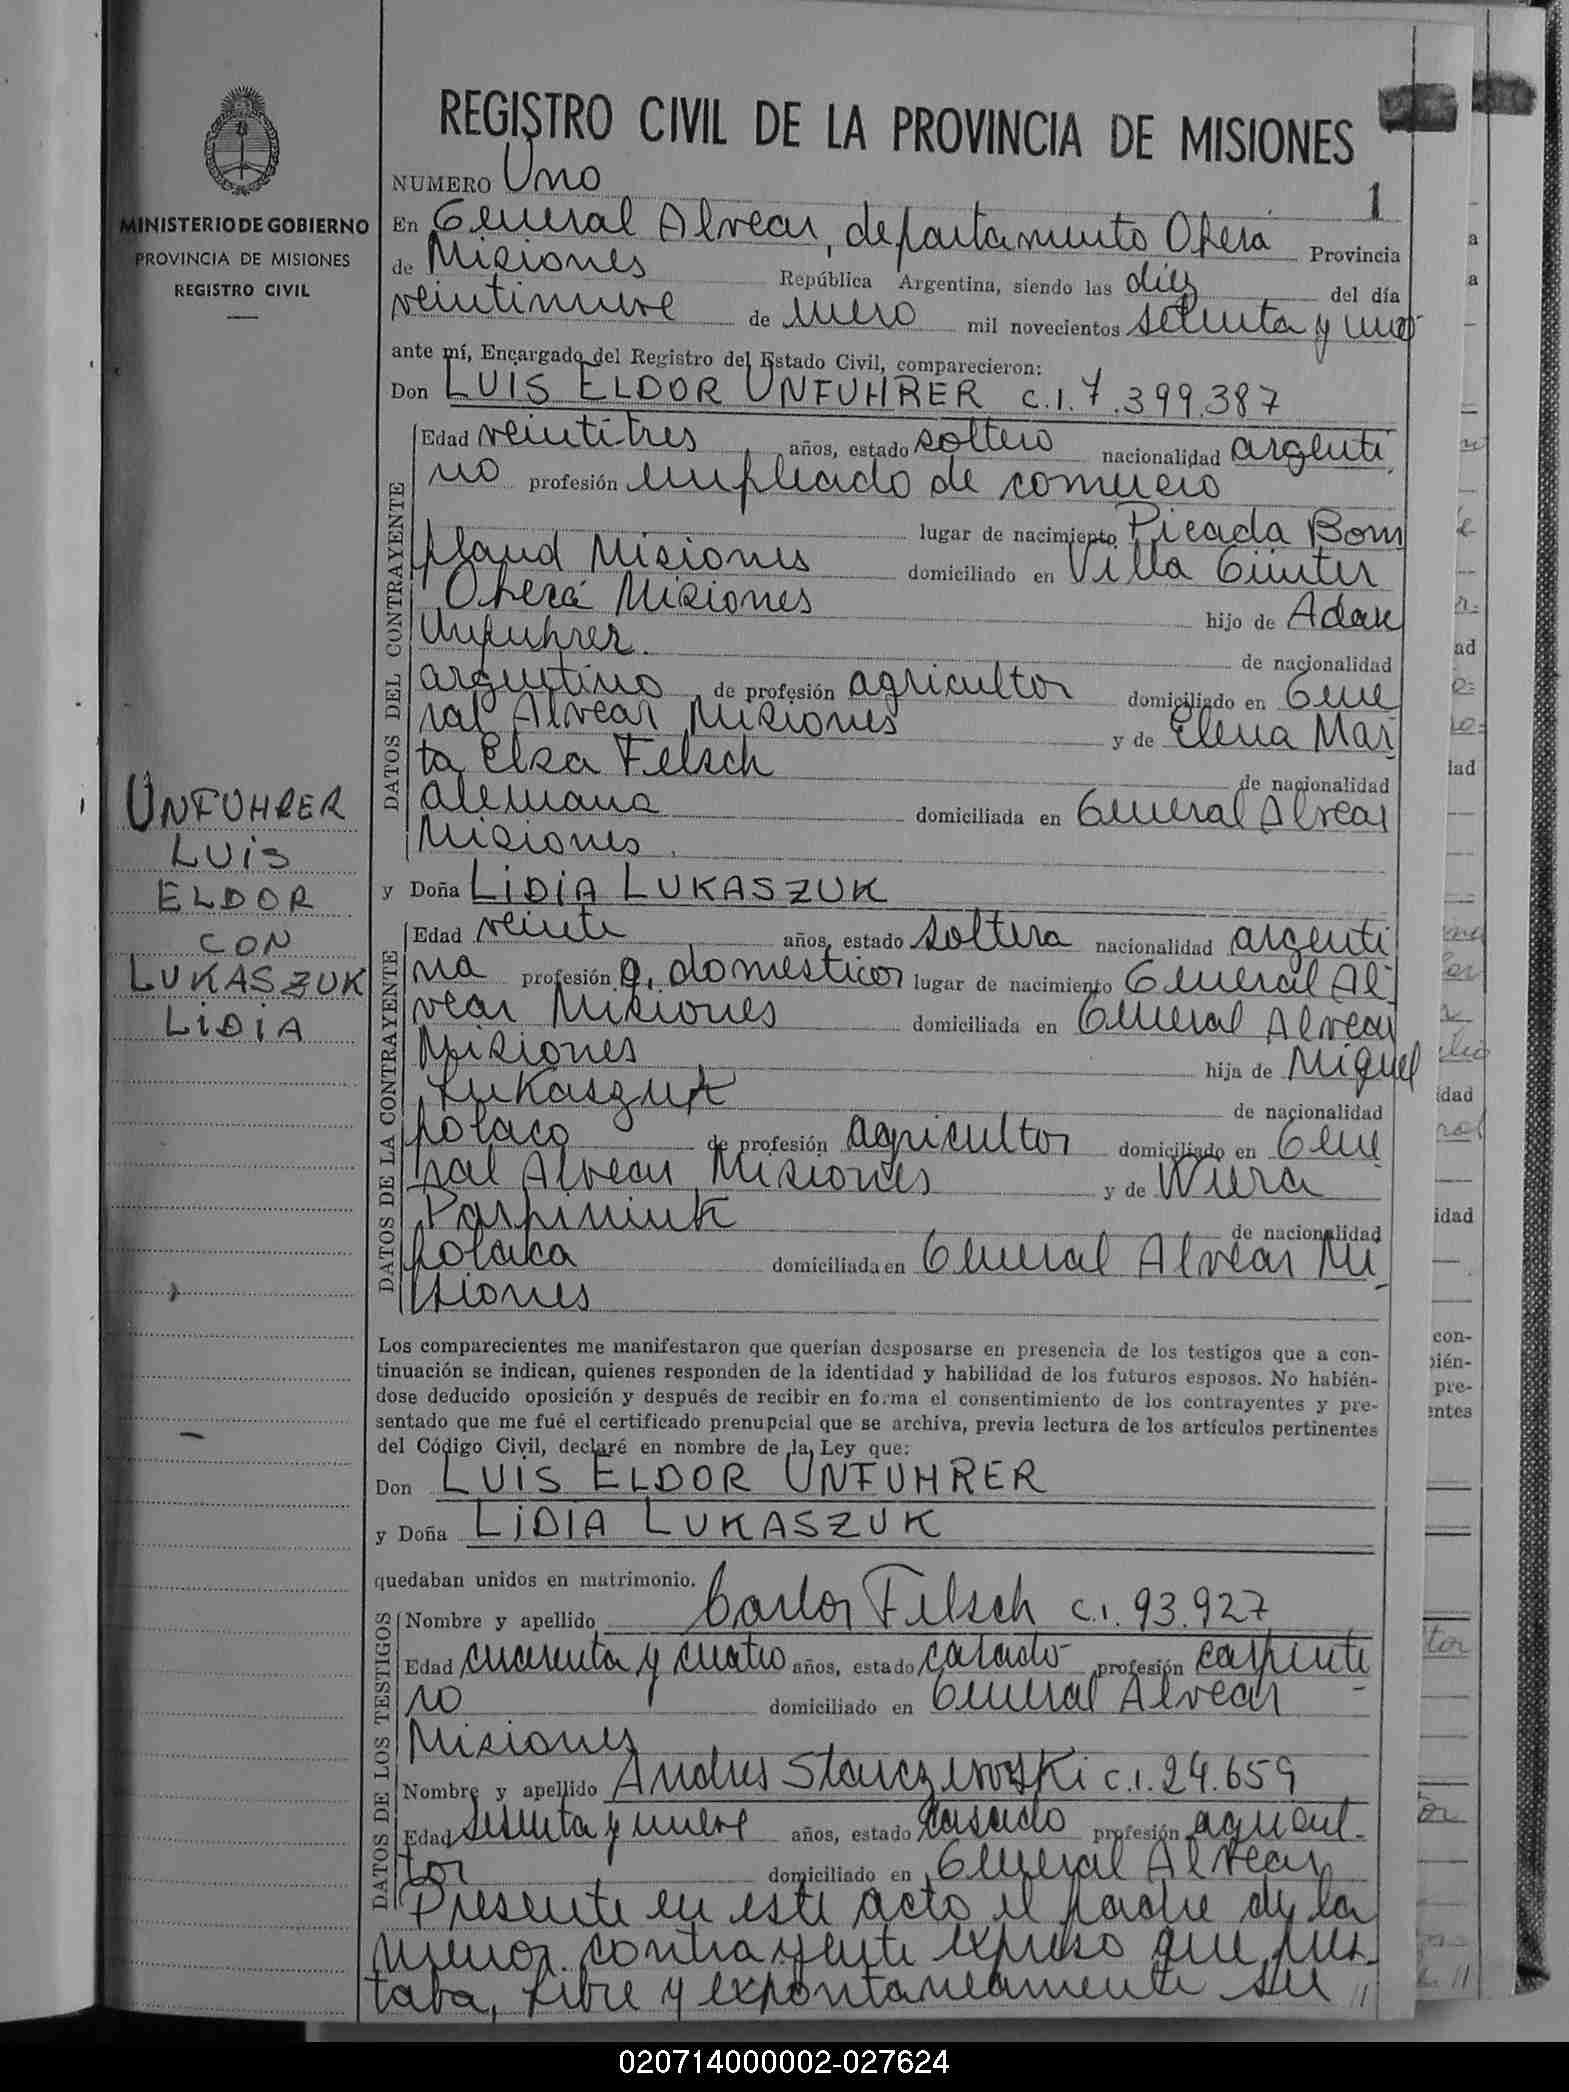 MINISTERIO DE GOBIERNO
PROVINCIA DE MISIONES
REGISTRO CIVIL
UNFUHRER
LUIS
ELDOR
CON
LUKASZUK
LIDIA
REGISTRO CIVIL DE LA PROVINCIA DE MISIONES
NUMERO Uno
1
En General Alvear, departamento Obera Provincia
de Misiones República Argentina, siendo las diez del día
veintinueve de enero mil novecientos setenta y uno
ante mí, Encargado del Registro del Estado Civil, comparecieron:
Don LUIS ELDOR UNFUHRER c.i. 7.399.387
DATOS DEL CONTRAYENTE
Edad veintitres años, estado soltero nacionalidad argenti
no profesión empleado de comercio
lugar de nacimiento Picada Bom
pland Misiones domiciliado en Villa Günter
Oberá Misiones hijo de Adan
Unfuhrer. de nacionalidad
argentino de profesión agricultor domiciliado en Gene
ral Alvear Misiones y de Elena Mar
ta Elsa Felsch de nacionalidad
alemana domiciliada en General Alvear
Misiones.
y Doña LIDIA LUKASZUK
DATOS DE LA CONTRAYENTE
Edad veinte años, estado soltera nacionalidad argenti
na profesión q. domesticos lugar de nacimiento General Al
vear Misiones domiciliada en General Alvear
Misiones hija de Miguel
Lukaszuk de nacionalidad
polaco de profesión agricultor domiciliado en Gene
ral Alvear Misiones y de Wiera
de nacionalidad
polaca domiciliada en General Alvear Mi
siones
Los comparecientes me manifestaron que querían desposarse en presencia de los testigos que a con-
tinuación se indican, quienes responden de la identidad y habilidad de los futuros esposos. No habién-
dose deducido oposición y después de recibir en forma el consentimiento de los contrayentes y pre-
sentado que me fué el certificado prenupcial que se archiva, previa lectura de los artículos pertinentes
del Código Civil, declaré en nombre de la Ley que:
Don LUIS ELDOR UNFUHRER
y Doña LIDIA LUKASZUK
quedaban unidos en matrimonio.
DATOS DE LOS TESTIGOS
Nombre y apellido Carlos Felsch c.i. 93.927
Edad cuarenta y cuatro años, estado casado profesión carpinte
ro domiciliado en General Alvear
Misiones
Nombre y apellido Andres c.i. 24.659
Edad sesenta y nueve años, estado casado profesión agricul-
tor domiciliado en General Alvear
Presente en este acto el padre de la
menor contrayente expreso que pres-
taba, libre y expontaneamente su //
020714000002-027624